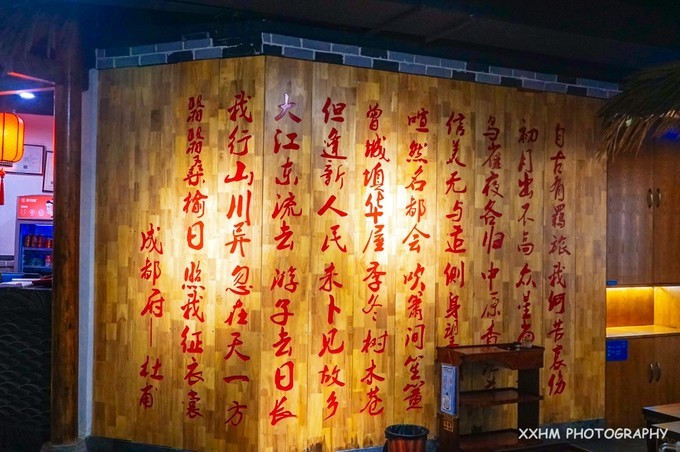 成都府—杜甫
翳翳桑榆日照我征衣裳
我行山川异忽在天一方
大江东流去游子去日长
但逢新人民未卜见故乡
曾城填华屋季冬树木苍
喧然名都会吹箫间笙簧
信美无与适侧身望
鸟雀夜各归中原杳
初月出不高众星尚
自古有羁旅我何苦哀伤
XXHM PHOTOGRAPHY